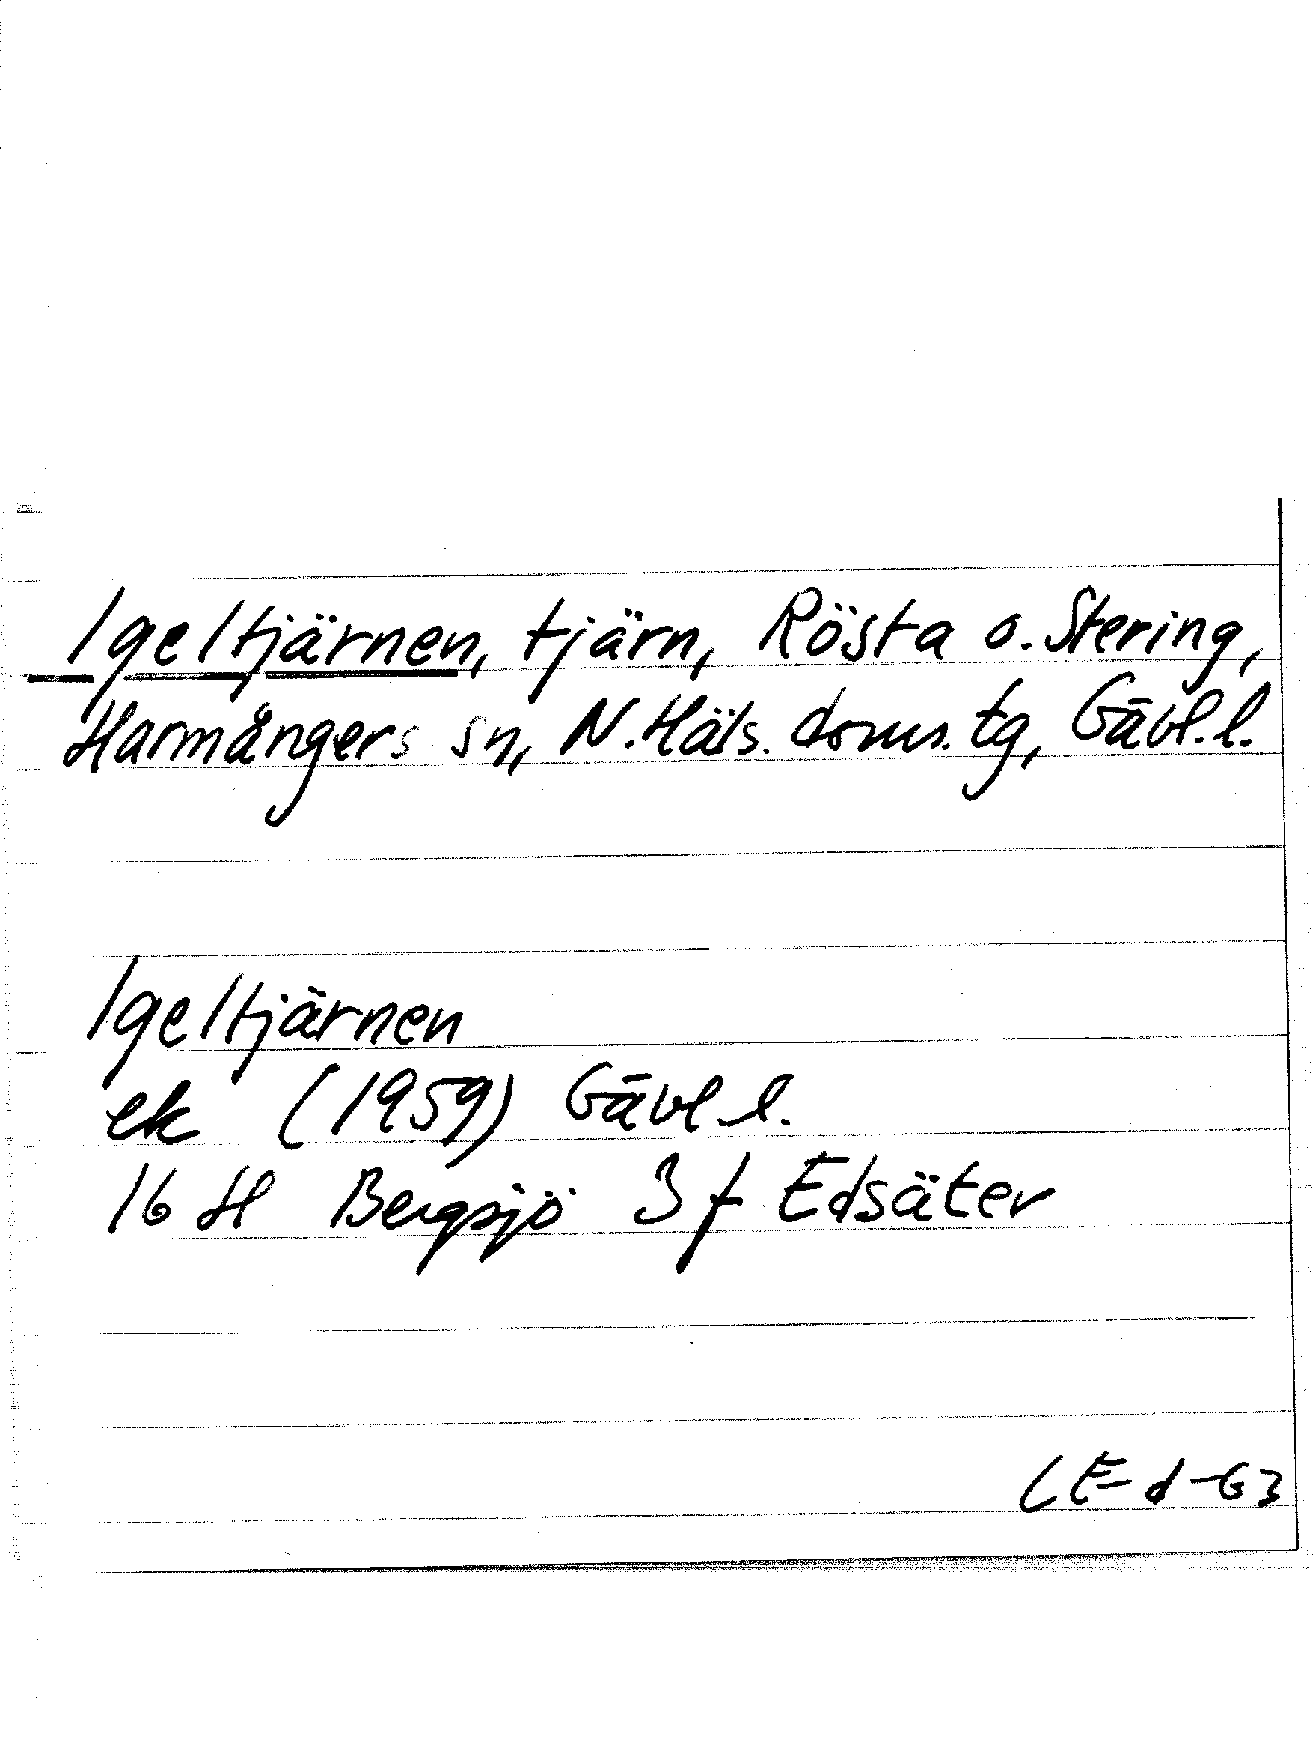 Igeltjärnen, tjärn, Rösta o. Stering,
Harmångers sn, N. Häls. doms. tg, Gävl. l.
Igeltjärnen
ek (1959) Gävl l.
16 H Bergsjö 3 f Edsäter